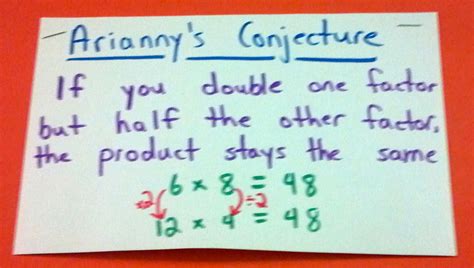 Arianny's Conjecture
If you double one factor
but half the other factor,
the product stays the same
6 × 8 = 48
×2 ÷2
12 × 4 = 48